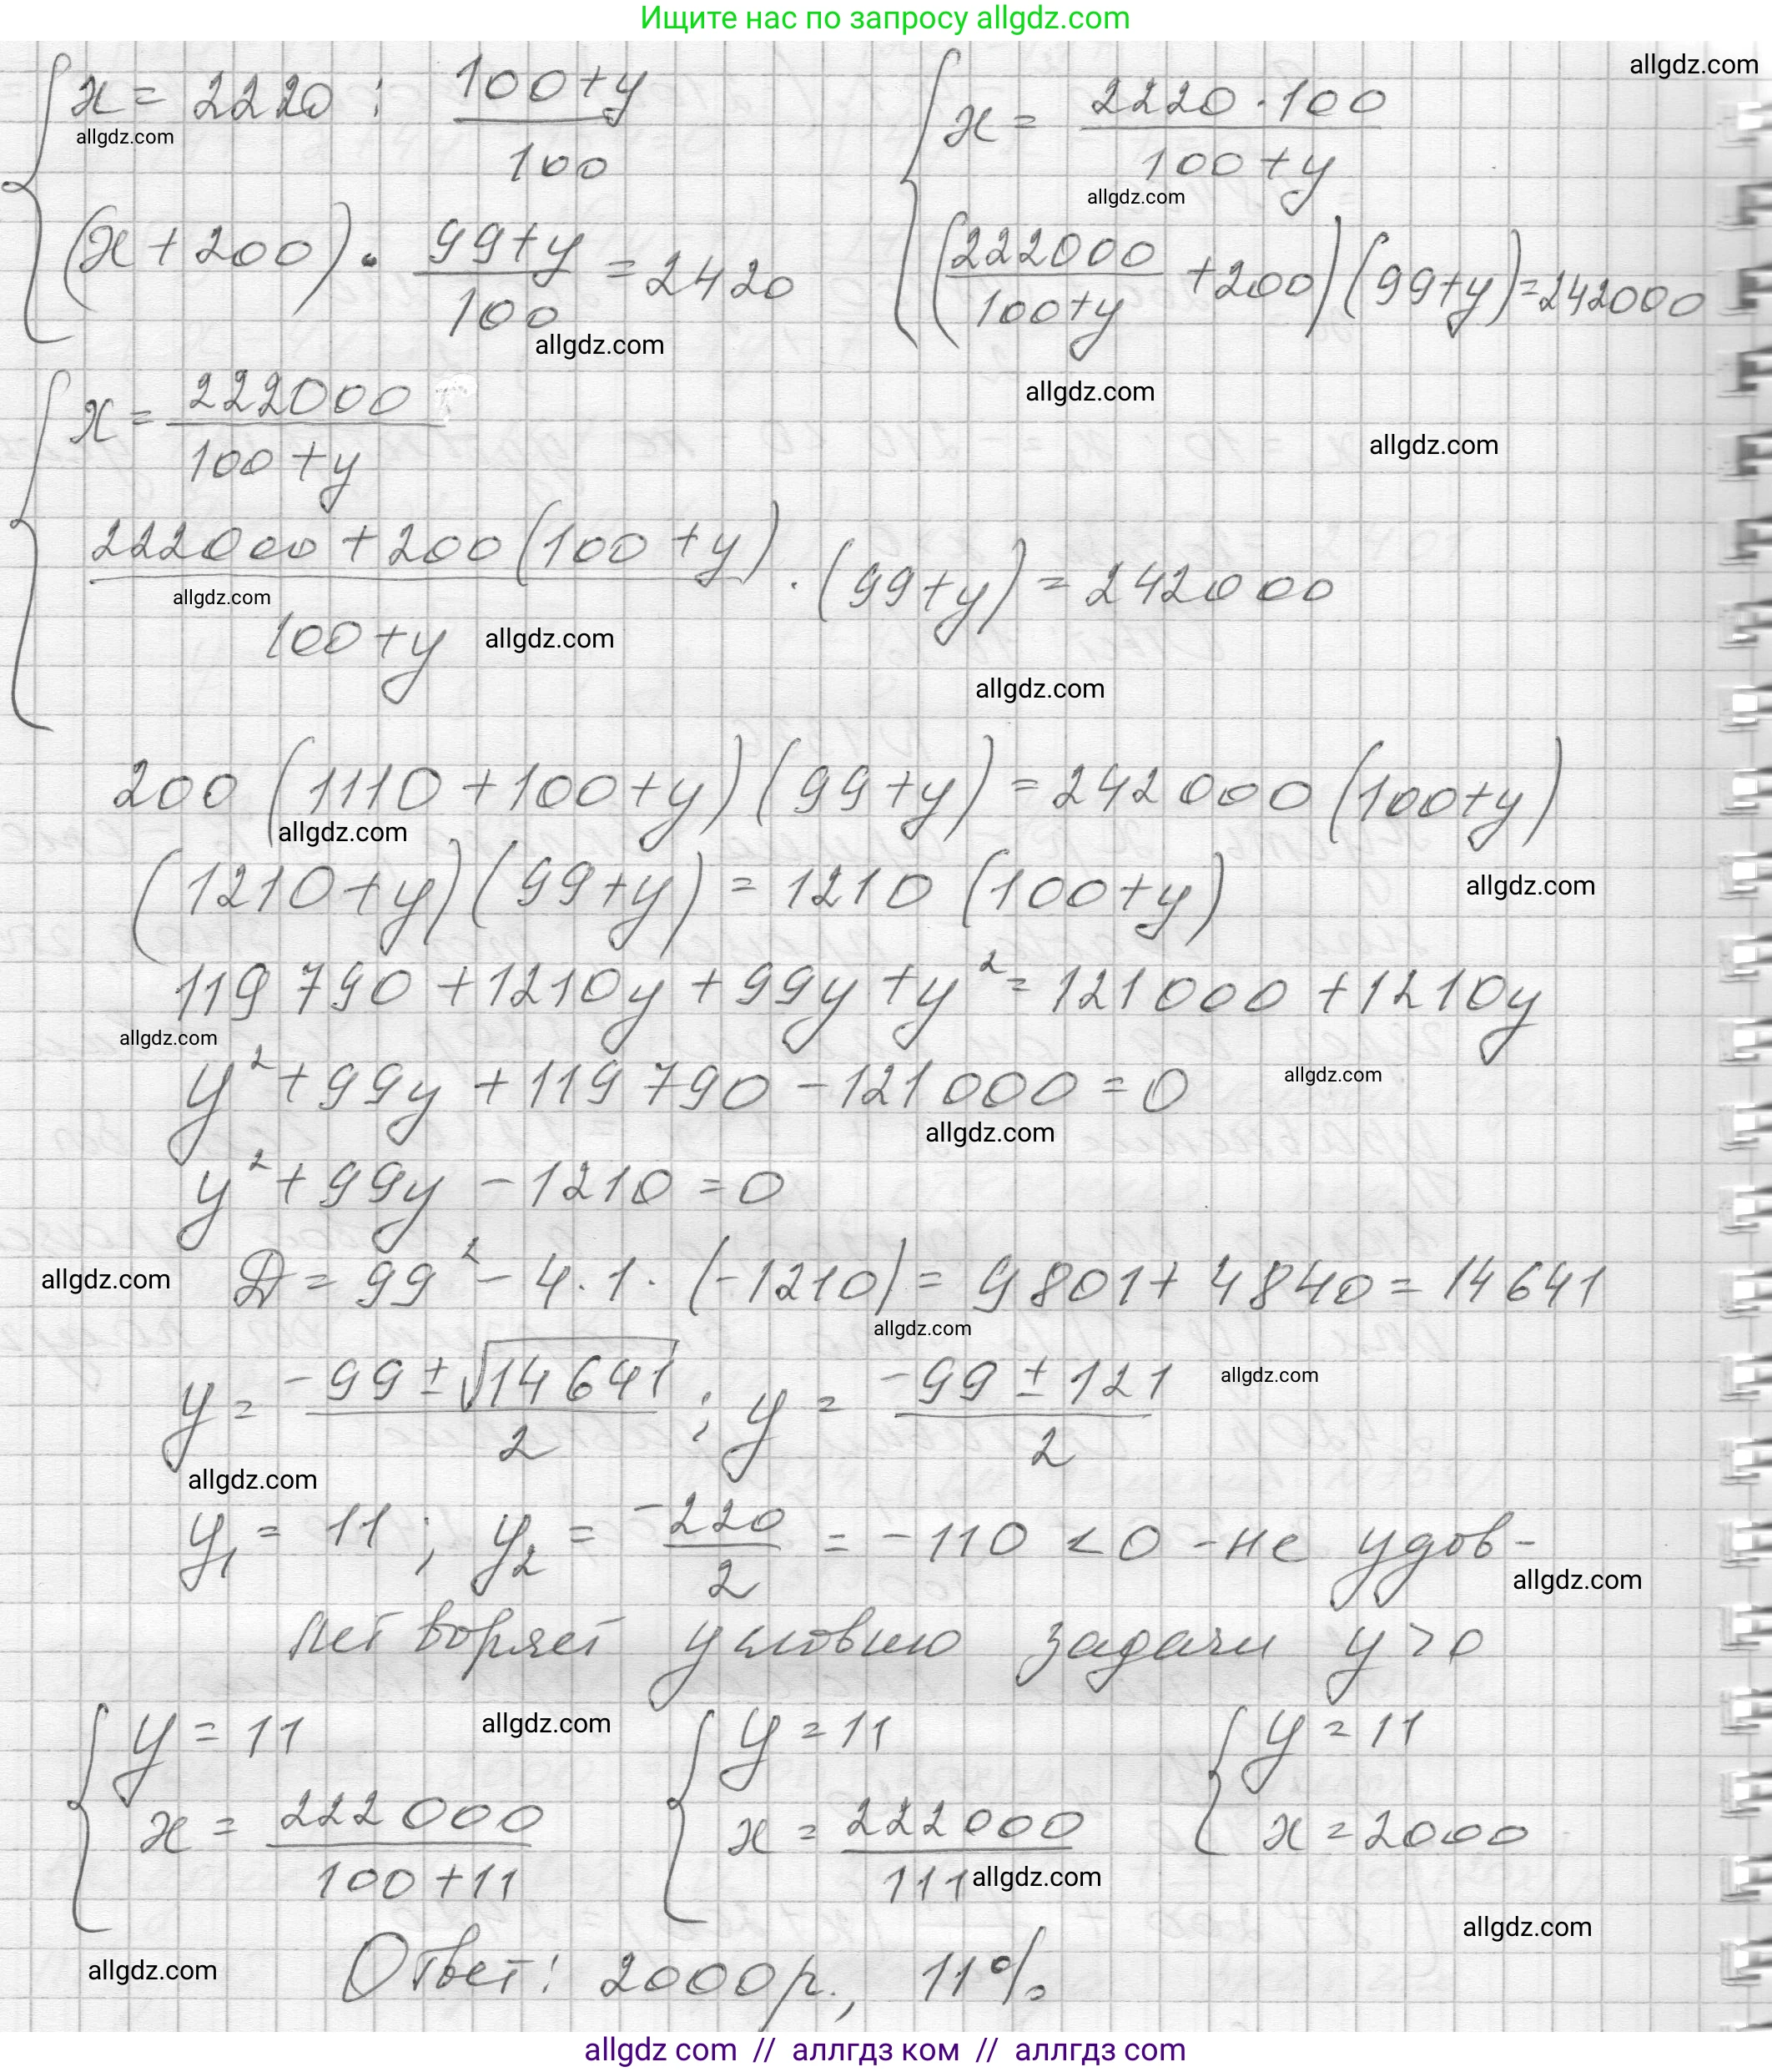 Ищите нас по запросу allgdz.com
allgdz.com
{ x = 2220 : (100+y)/100
allgdz.com
(x+200) · (99+y)/100 = 2420
allgdz.com
{ x = (2220·100)/(100+y)
allgdz.com
(222000/(100+y) +200)(99+y)=242000
allgdz.com
allgdz.com
{ x = 222000/(100+y)
(222000+200(100+y))/(100+y) · (99+y) = 242000
allgdz.com
allgdz.com
allgdz.com
200(1110+100+y)(99+y) = 242000(100+y)
allgdz.com
(1210+y)(99+y) = 1210(100+y)
allgdz.com
119790+1210y+99y+y² = 121000+1210y
allgdz.com
y²+99y+119790-121000=0
allgdz.com
allgdz.com
y²+99y-1210=0
allgdz.com
D = 99²-4·1·(-1210) = 9801+4840=14641
allgdz.com
y = (-99±√14641)/2 ; y = (-99±121)/2
allgdz.com
allgdz.com
y₁ = 11 ; y₂ = -220/2 = -110 <0 - не удов-
allgdz.com
летворяет условию задачи y>0
{ y=11 x = 222000/(100+11)
allgdz.com
{ y=11 x = 222000/111
allgdz.com
{ y=11 x=2000
allgdz.com
allgdz.com
Ответ: 2000р., 11%
allgdz com // аллгдз ком // аллгдз com